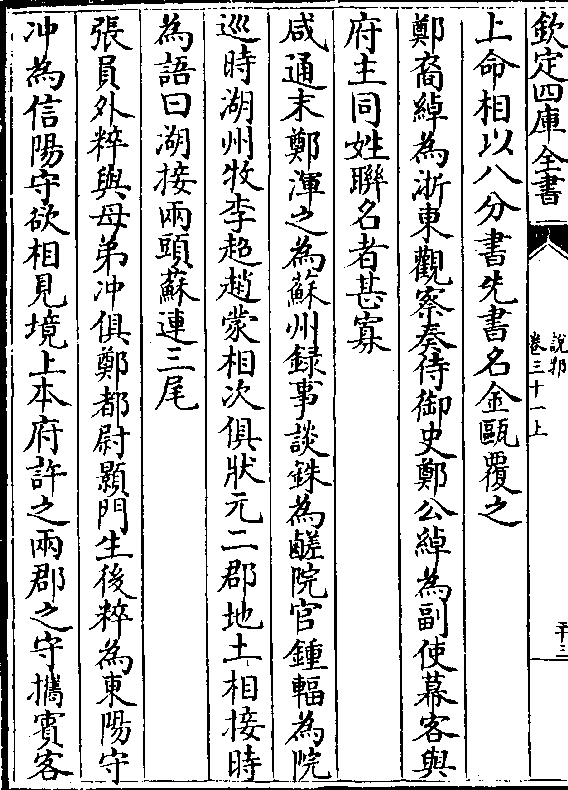 欽定四庫全書
說郛
卷三十一上
上命相以八分書先書名金甌覆之
鄭裔綽為浙東觀察奏侍御史鄭公綽為副使幕客與
府主同姓聯名者甚寡
咸通末鄭渾之為蘇州録事談銖為鹺院官鍾輻為院
巡時湖州牧李超趙蒙相次俱狀元二郡地土相接時
為語曰湖接兩頭蘇連三尾
張員外粹與母弟冲俱鄭都尉顥門生後粹為東陽守
冲為信陽守欲相見境上本府許之兩郡之守攜賓客